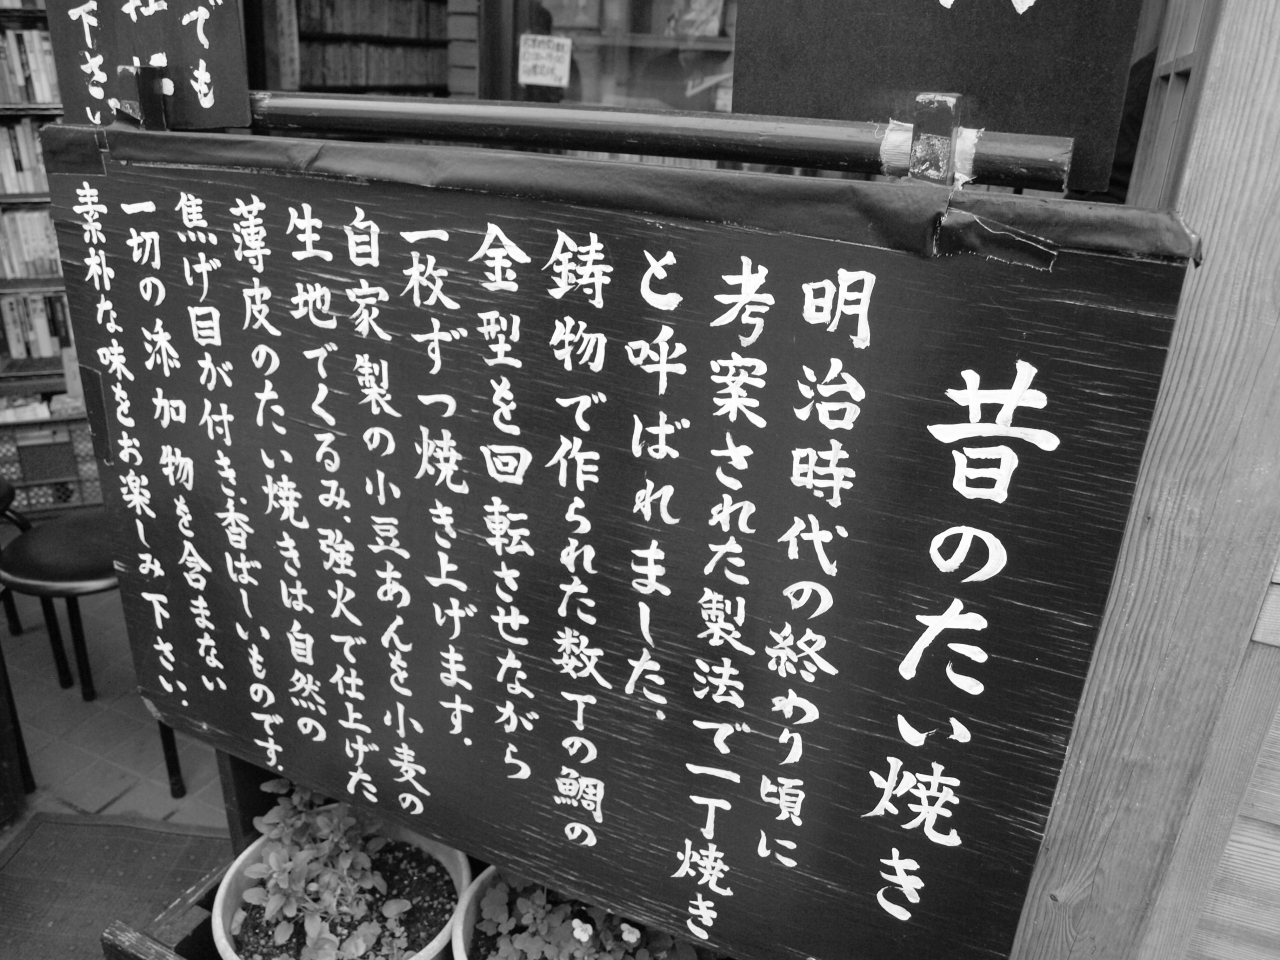 昔のたい焼き
明治時代の終わり頃に
考案された製法で一丁焼き
と呼ばれました.
鋳物で作られた数丁の鯛の
金型を回転させながら
一枚ずつ焼き上げます.
自家製の小豆あんを小麦の
生地でくるみ、強火で仕上げた
薄皮のたい焼きは自然の
焦げ目が付き、香ばしいものです.
一切の添加物を含まない
素朴な味をお楽しみ下さい.
でも
下さい